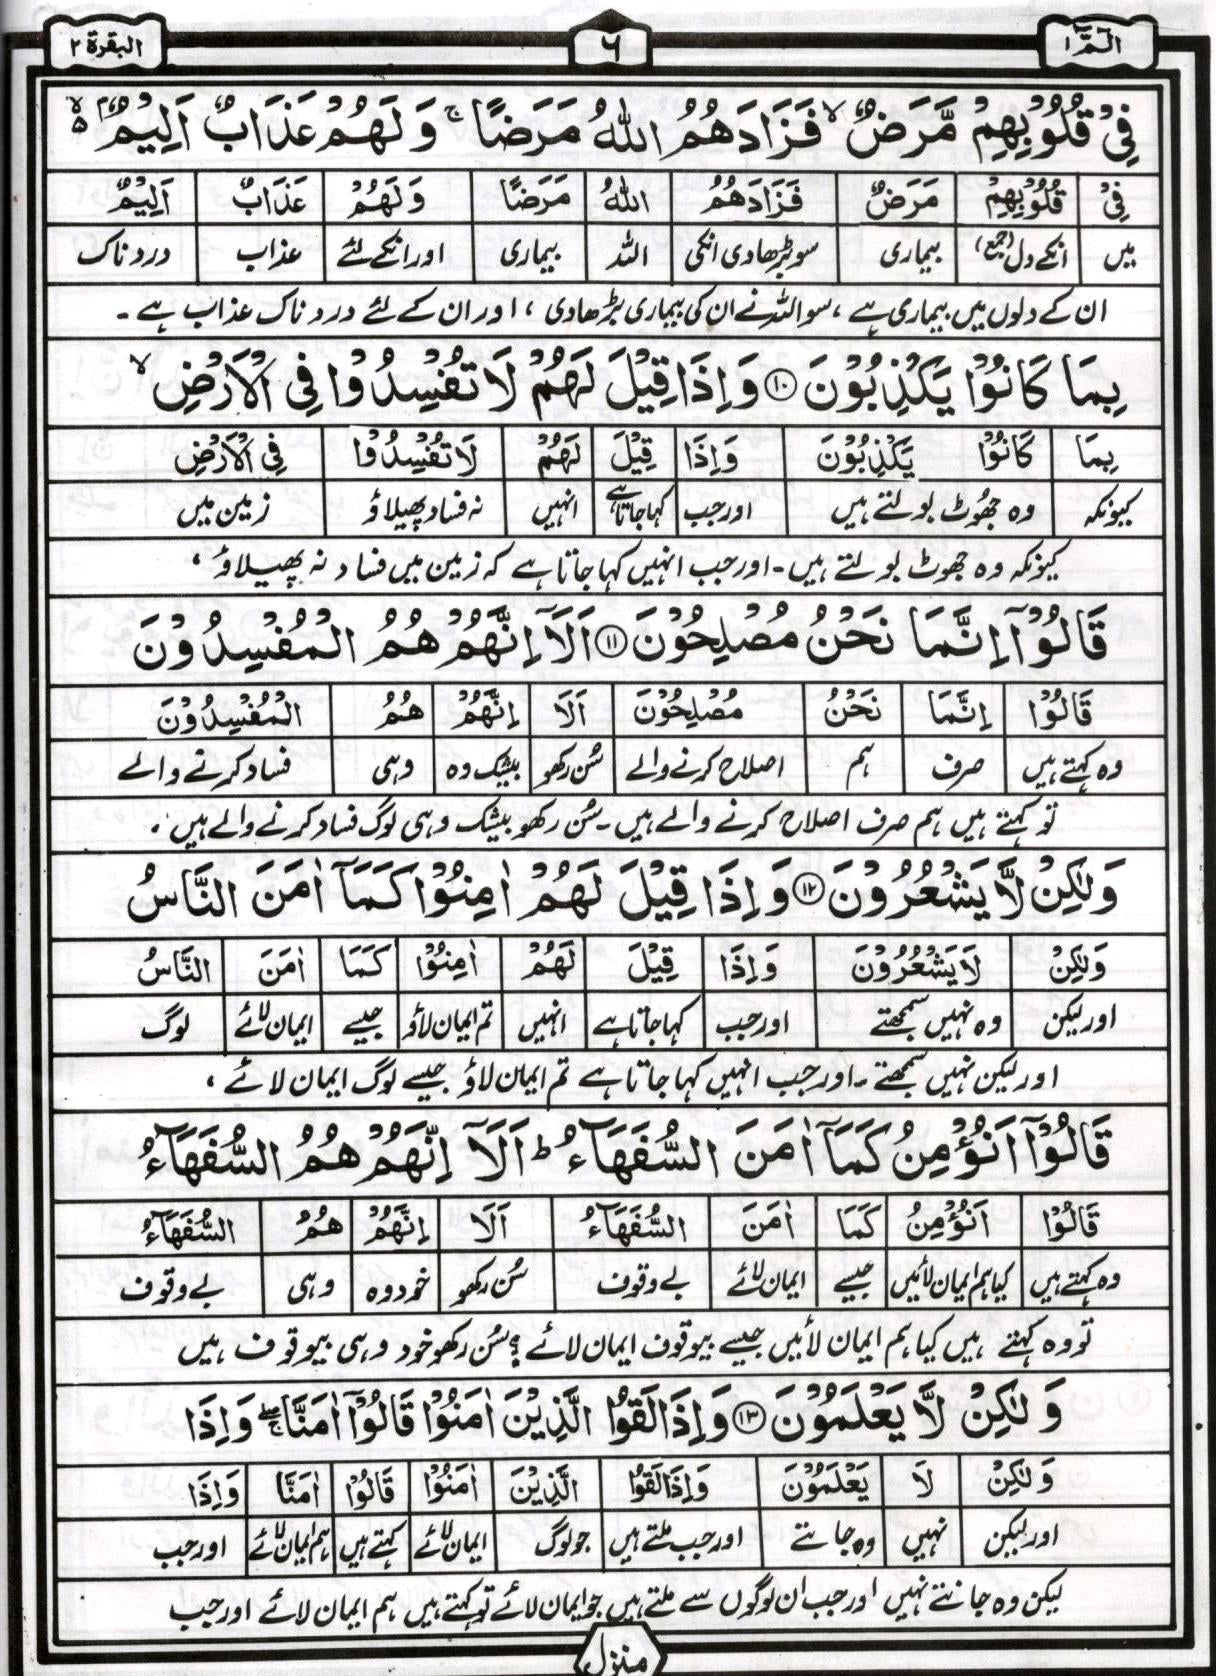 الٓمّٓ ١ ٦ البقرة ٢
فِیْ قُلُوْبِهِمْ مَّرَضٌ ۙ فَزَادَهُمُ اللّٰهُ مَرَضًا ۚ وَ لَهُمْ عَذَابٌ اَلِیْمٌۢ ۙ۬
فِیْ قُلُوْبِهِمْ مَرَضٌ فَزَادَهُمُ اللّٰهُ مَرَضًا وَلَهُمْ عَذَابٌ اَلِیْمٌ
میں انکے دل (جمع) بیماری سو بڑھا دی انکی اللہ بیماری اور انکے لئے عذاب دردناک
ان کے دلوں میں بیماری ہے ، سو اللہ نے ان کی بیماری بڑھا دی ، اور ان کے لئے دردناک عذاب ہے ۔
بِمَا كَانُوْا یَكْذِبُوْنَ ⑩ وَ اِذَا قِیْلَ لَهُمْ لَا تُفْسِدُوْا فِی الْاَرْضِ ۙ
بِمَا كَانُوْا یَكْذِبُوْنَ وَاِذَا قِیْلَ لَهُمْ لَا تُفْسِدُوْا فِی الْاَرْضِ
کیونکہ وہ جھوٹ بولتے ہیں اور جب کہا جاتا ہے انہیں نہ فساد پھیلاؤ زمین میں
کیونکہ وہ جھوٹ بولتے ہیں ۔ اور جب انہیں کہا جاتا ہے کہ زمین میں فساد نہ پھیلاؤ ،
قَالُوْۤا اِنَّمَا نَحْنُ مُصْلِحُوْنَ ⑪ اَلَاۤ اِنَّهُمْ هُمُ الْمُفْسِدُوْنَ
قَالُوْا اِنَّمَا نَحْنُ مُصْلِحُوْنَ اَلَا اِنَّهُمْ هُمُ الْمُفْسِدُوْنَ
وہ کہتے ہیں صرف ہم اصلاح کرنے والے سُن رکھو بیشک وہ وہی فساد کرنے والے
تو کہتے ہیں ہم صرف اصلاح کرنے والے ہیں ۔ سُن رکھو بیشک وہی لوگ فساد کرنے والے ہیں ۔
وَلٰكِنْ لَّا یَشْعُرُوْنَ ⑫ وَ اِذَا قِیْلَ لَهُمْ اٰمِنُوْا كَمَاۤ اٰمَنَ النَّاسُ
وَلٰكِنْ لَا یَشْعُرُوْنَ وَاِذَا قِیْلَ لَهُمْ اٰمِنُوْا كَمَا اٰمَنَ النَّاسُ
اور لیکن وہ نہیں سمجھتے اور جب کہا جاتا ہے انہیں تم ایمان لاؤ جیسے ایمان لائے لوگ
اور لیکن نہیں سمجھتے ۔ اور جب انہیں کہا جاتا ہے تم ایمان لاؤ جیسے لوگ ایمان لائے ،
قَالُوْۤا اَنُؤْمِنُ كَمَاۤ اٰمَنَ السُّفَهَآءُ ؕ اَلَاۤ اِنَّهُمْ هُمُ السُّفَهَآءُ
قَالُوْا اَنُؤْمِنُ كَمَا اٰمَنَ السُّفَهَآءُ اَلَا اِنَّهُمْ هُمُ السُّفَهَآءُ
وہ کہتے ہیں کیا ہم ایمان لائیں جیسے ایمان لائے بے وقوف سُن رکھو خود وہ وہی بے وقوف
تو وہ کہتے ہیں کیا ہم ایمان لائیں جیسے بیوقوف ایمان لائے ؟ سُن رکھو خود وہی بیوقوف ہیں
وَ لٰكِنْ لَّا یَعْلَمُوْنَ ⑬ وَ اِذَا لَقُوا الَّذِیْنَ اٰمَنُوْا قَالُوْۤا اٰمَنَّا ۖۚ وَ اِذَا
وَلٰكِنْ لَا یَعْلَمُوْنَ وَاِذَا لَقُوا الَّذِیْنَ اٰمَنُوْا قَالُوْا اٰمَنَّا وَاِذَا
اور لیکن نہیں وہ جانتے اور جب ملتے ہیں جو لوگ ایمان لائے کہتے ہیں ہم ایمان لائے اور جب
لیکن وہ جانتے نہیں اور جب ان لوگوں سے ملتے ہیں جو ایمان لائے تو کہتے ہیں ہم ایمان لائے اور جب
منزل